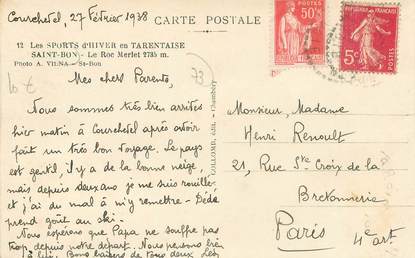 Courchevel, 27 Février 1938
CARTE POSTALE
12 Les SPORTS d'HIVER en TARENTAISE
SAINT-BON - Le Roc Merlet 2735 m.
Photo A. VILNA - St-Bon
Mes chers Parents,
Nous sommes très bien arrivés
hier matin à Courchevel après avoir
fait un très bon voyage. Le pays
est gentil, il y a de la bonne neige,
mais depuis deux ans je me suis rouillé
et j'ai du mal à m'y remettre - Dédé
prend goût au ski -
Nous espérons que Papa ne souffre pas
trop, depuis notre départ. Nous pensons bien
à lui. Bons baisers de tous deux.
73
COLLOMB, édit. - Chambéry
50c
POSTES
5c
Monsieur, Madame
Henri Renoult
21, Rue Ste Croix de la
Bretonnerie
Paris
4e arrt